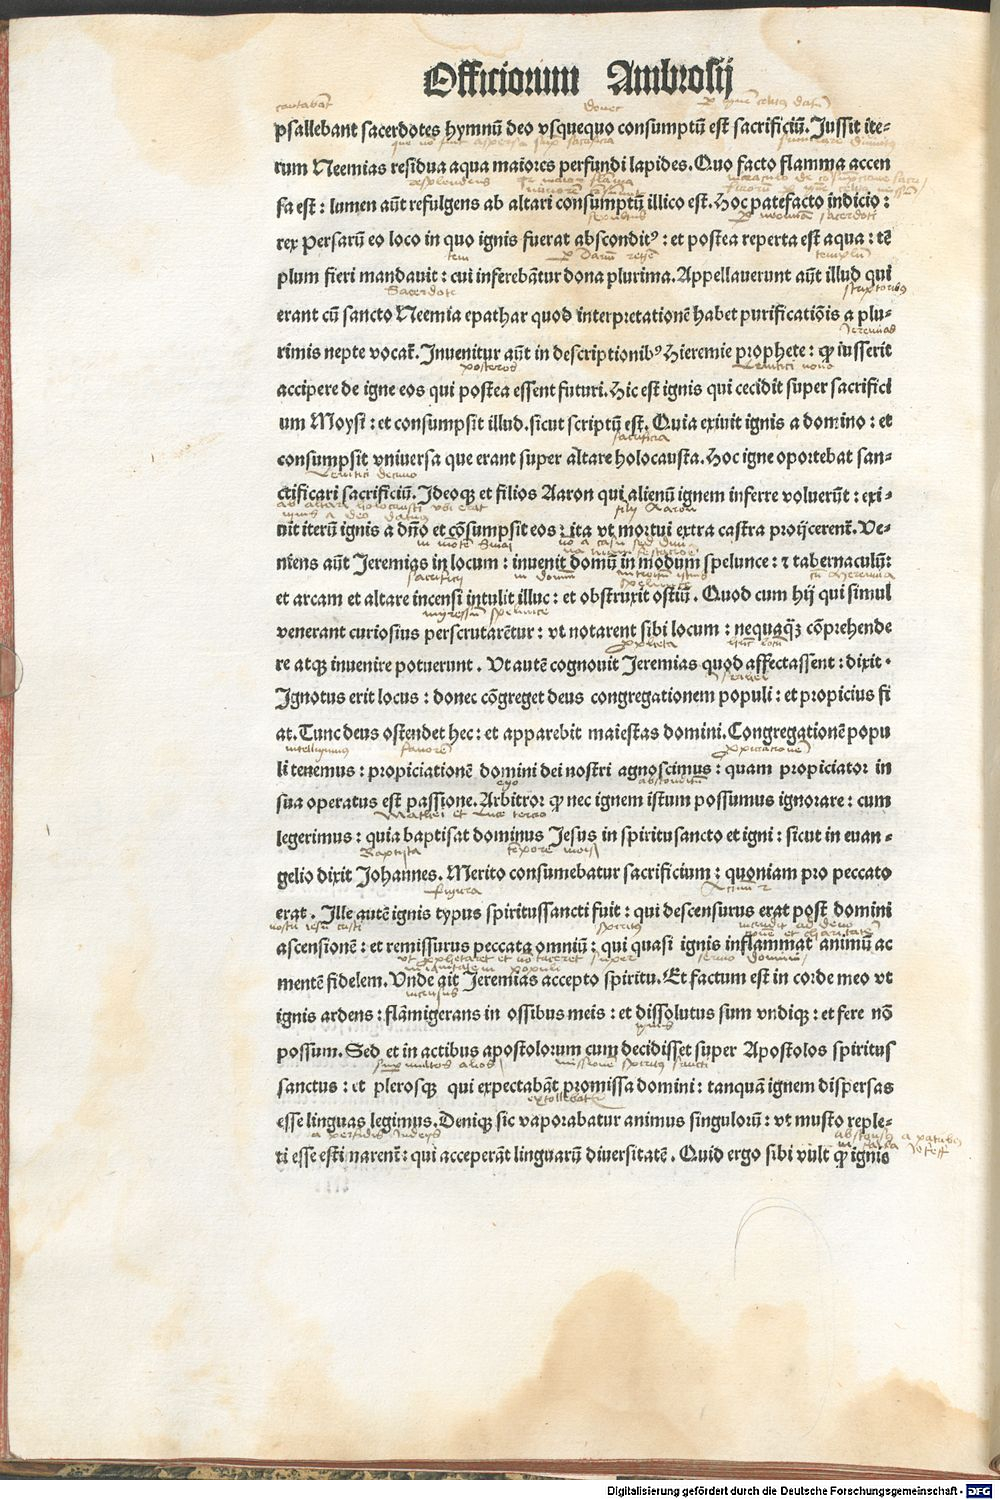 Officiorum Ambrosij
cantabāt
donec
psallebant sacerdotes hymnū deo vsquequo consumptū est sacrificiū. Jussit ite-
rum Neemias residua aqua maiores perfundi lapides. Quo facto flamma accen
resplendens
sa est : lumen aūt refulgens ab altari consumptū illico est. Hoc patefacto indicio :
rex Persarū eo loco in quo ignis fuerat abscondit⁹ : et postea reperta est aqua : tē
templū
plum fieri mandauit : cui inferebātur dona plurima. Appellauerunt aūt illud qui
Sacerdote
erant cū sancto Neemia epathar quod interpretationē habet purificatiōis a plu-
Jeremias
rimis nepte vocat̄. Inuenitur aūt in descriptionib⁹ Hieremie prophete : ꝙ iusserit
posteros
accipere de igne eos qui postea essent futuri. Hic est ignis qui cecidit super sacrifici
um Moysi : et consumpsit illud. sicut scriptū est. Quia exiuit ignis a domino : et
sacrificia
consumpsit vniuersa que erant super altare holocausta. Hoc igne oportebat san-
Leuitici decimo
ctificari sacrificiū. Ideoqꝫ et filios Aaron qui alienū ignem inferre voluerūt : exi-
filij Aaron
uit iterū ignis a dn̄o et cōsumpsit eos : ita vt mortui extra castra proijcerent̄. Ve-
niens aūt Jeremias in locum : inuenit domū in modum spelunce : ⁊ tabernaculū :
sacrificij
et arcam et altare incensi intulit illuc : et obstruxit ostiū. Quod cum hij qui simul
ingressum spelunce
venerant curiosius perscrutarētur : vt notarent sibi locum : nequaqꝫ cōprehende
re atqꝫ inuenire potuerunt. Vt autē cognouit Jeremias quod affectassent : dixit.
Ignotus erit locus : donec cōgreget deus congregationem populi : et propicius fi
at. Tunc deus ostendet hec : et apparebit maiestas domini. Congregationē popu
intelligimus
fauorē
li tenemus : propiciationē domini dei nostri agnoscimus : quam propiciator in
ego
sua operatus est passione. Arbitror ꝙ nec ignem istum possumus ignorare : cum
Mathei et Luce tercio
legerimus : quia baptisat dominus Jesus in spiritusancto et igni : sicut in euan-
Baptista
gelio dixit Johannes. Merito consumebatur sacrificium : quoniam pro peccato
figura
erat. Ille autē ignis typus spiritussancti fuit : qui descensurus erat post domini
spiritus
ascensionē : et remissurus peccata omniū : qui quasi ignis inflammat animū ac
mentē fidelem. Vnde ait Jeremias accepto spiritu. Et factum est in corde meo vt
incensus
ignis ardens : flāmigerans in ossibus meis : et dissolutus sum vndiqꝫ : et fere nō
possum. Sed et in actibus apostolorum cum decidisset super Apostolos spiritus
sanctus : et plerosqꝫ qui expectabāt promissa domini : tanquā ignem dispersas
esse linguas legimus. Deniqꝫ sic vaporabatur animus singulorū : vt musto reple-
a perfidis Judeys
ti esse estimarent̄ : qui acceperāt linguarū diuersitatē. Quid ergo sibi vult ꝙ ignis
Digitalisierung gefördert durch die Deutsche Forschungsgemeinschaft - DFG